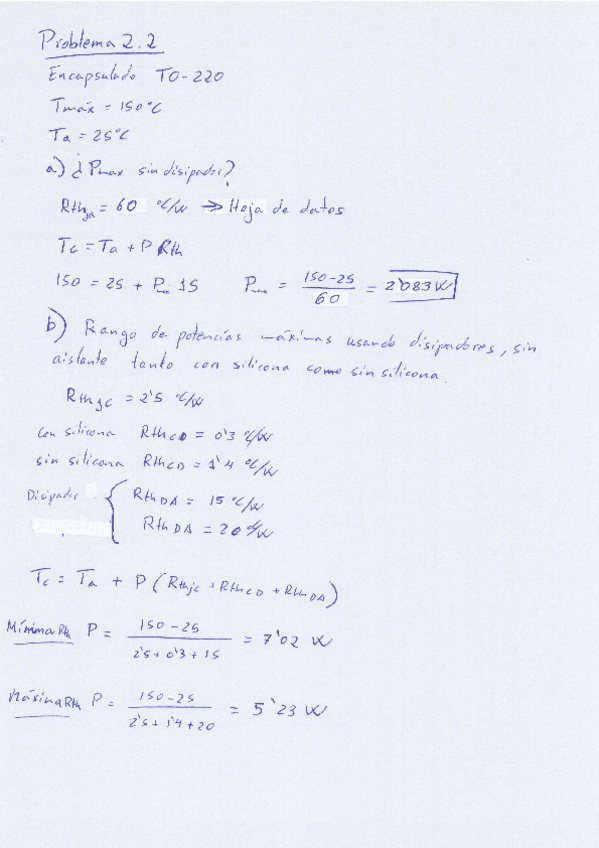 Problema 2.2
Encapsulado TO-220
Tmáx = 150°C
Ta = 25°C
a) ¿Pmax sin disipador?
Rthja = 60 °C/W → Hoja de datos
Tc = Ta + P Rth
150 = 25 + Pmax 15 Pmax = (150-25)/60 = 2'083 W
b) Rango de potencias máximas usando disipadores, sin
aislante tanto con silicona como sin silicona.
Rthjc = 2'5 °C/W
con silicona RthCD = 0'3 °C/W
sin silicona RthCD = 1'4 °C/W
Disipador { RthDA = 15 °C/W
RthDA = 20 °C/W
Tc = Ta + P (Rthjc + RthCD + RthDA)
Mínima Rth P = (150-25)/(2'5+0'3+15) = 7'02 W
Máxima Rth P = (150-25)/(2'5+1'4+20) = 5'23 W